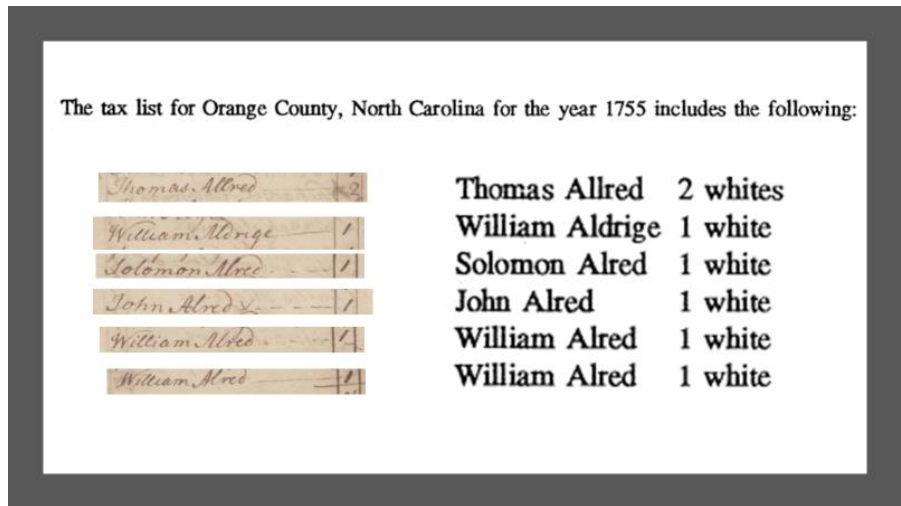 The tax list for Orange County, North Carolina for the year 1755 includes the following:
Thomas Allred 2
William Aldrige 1
Solomon Alred 1
John Alred 1
William Alred 1
William Alred 1
Thomas Allred 2 whites
William Aldrige 1 white
Solomon Alred 1 white
John Alred 1 white
William Alred 1 white
William Alred 1 white